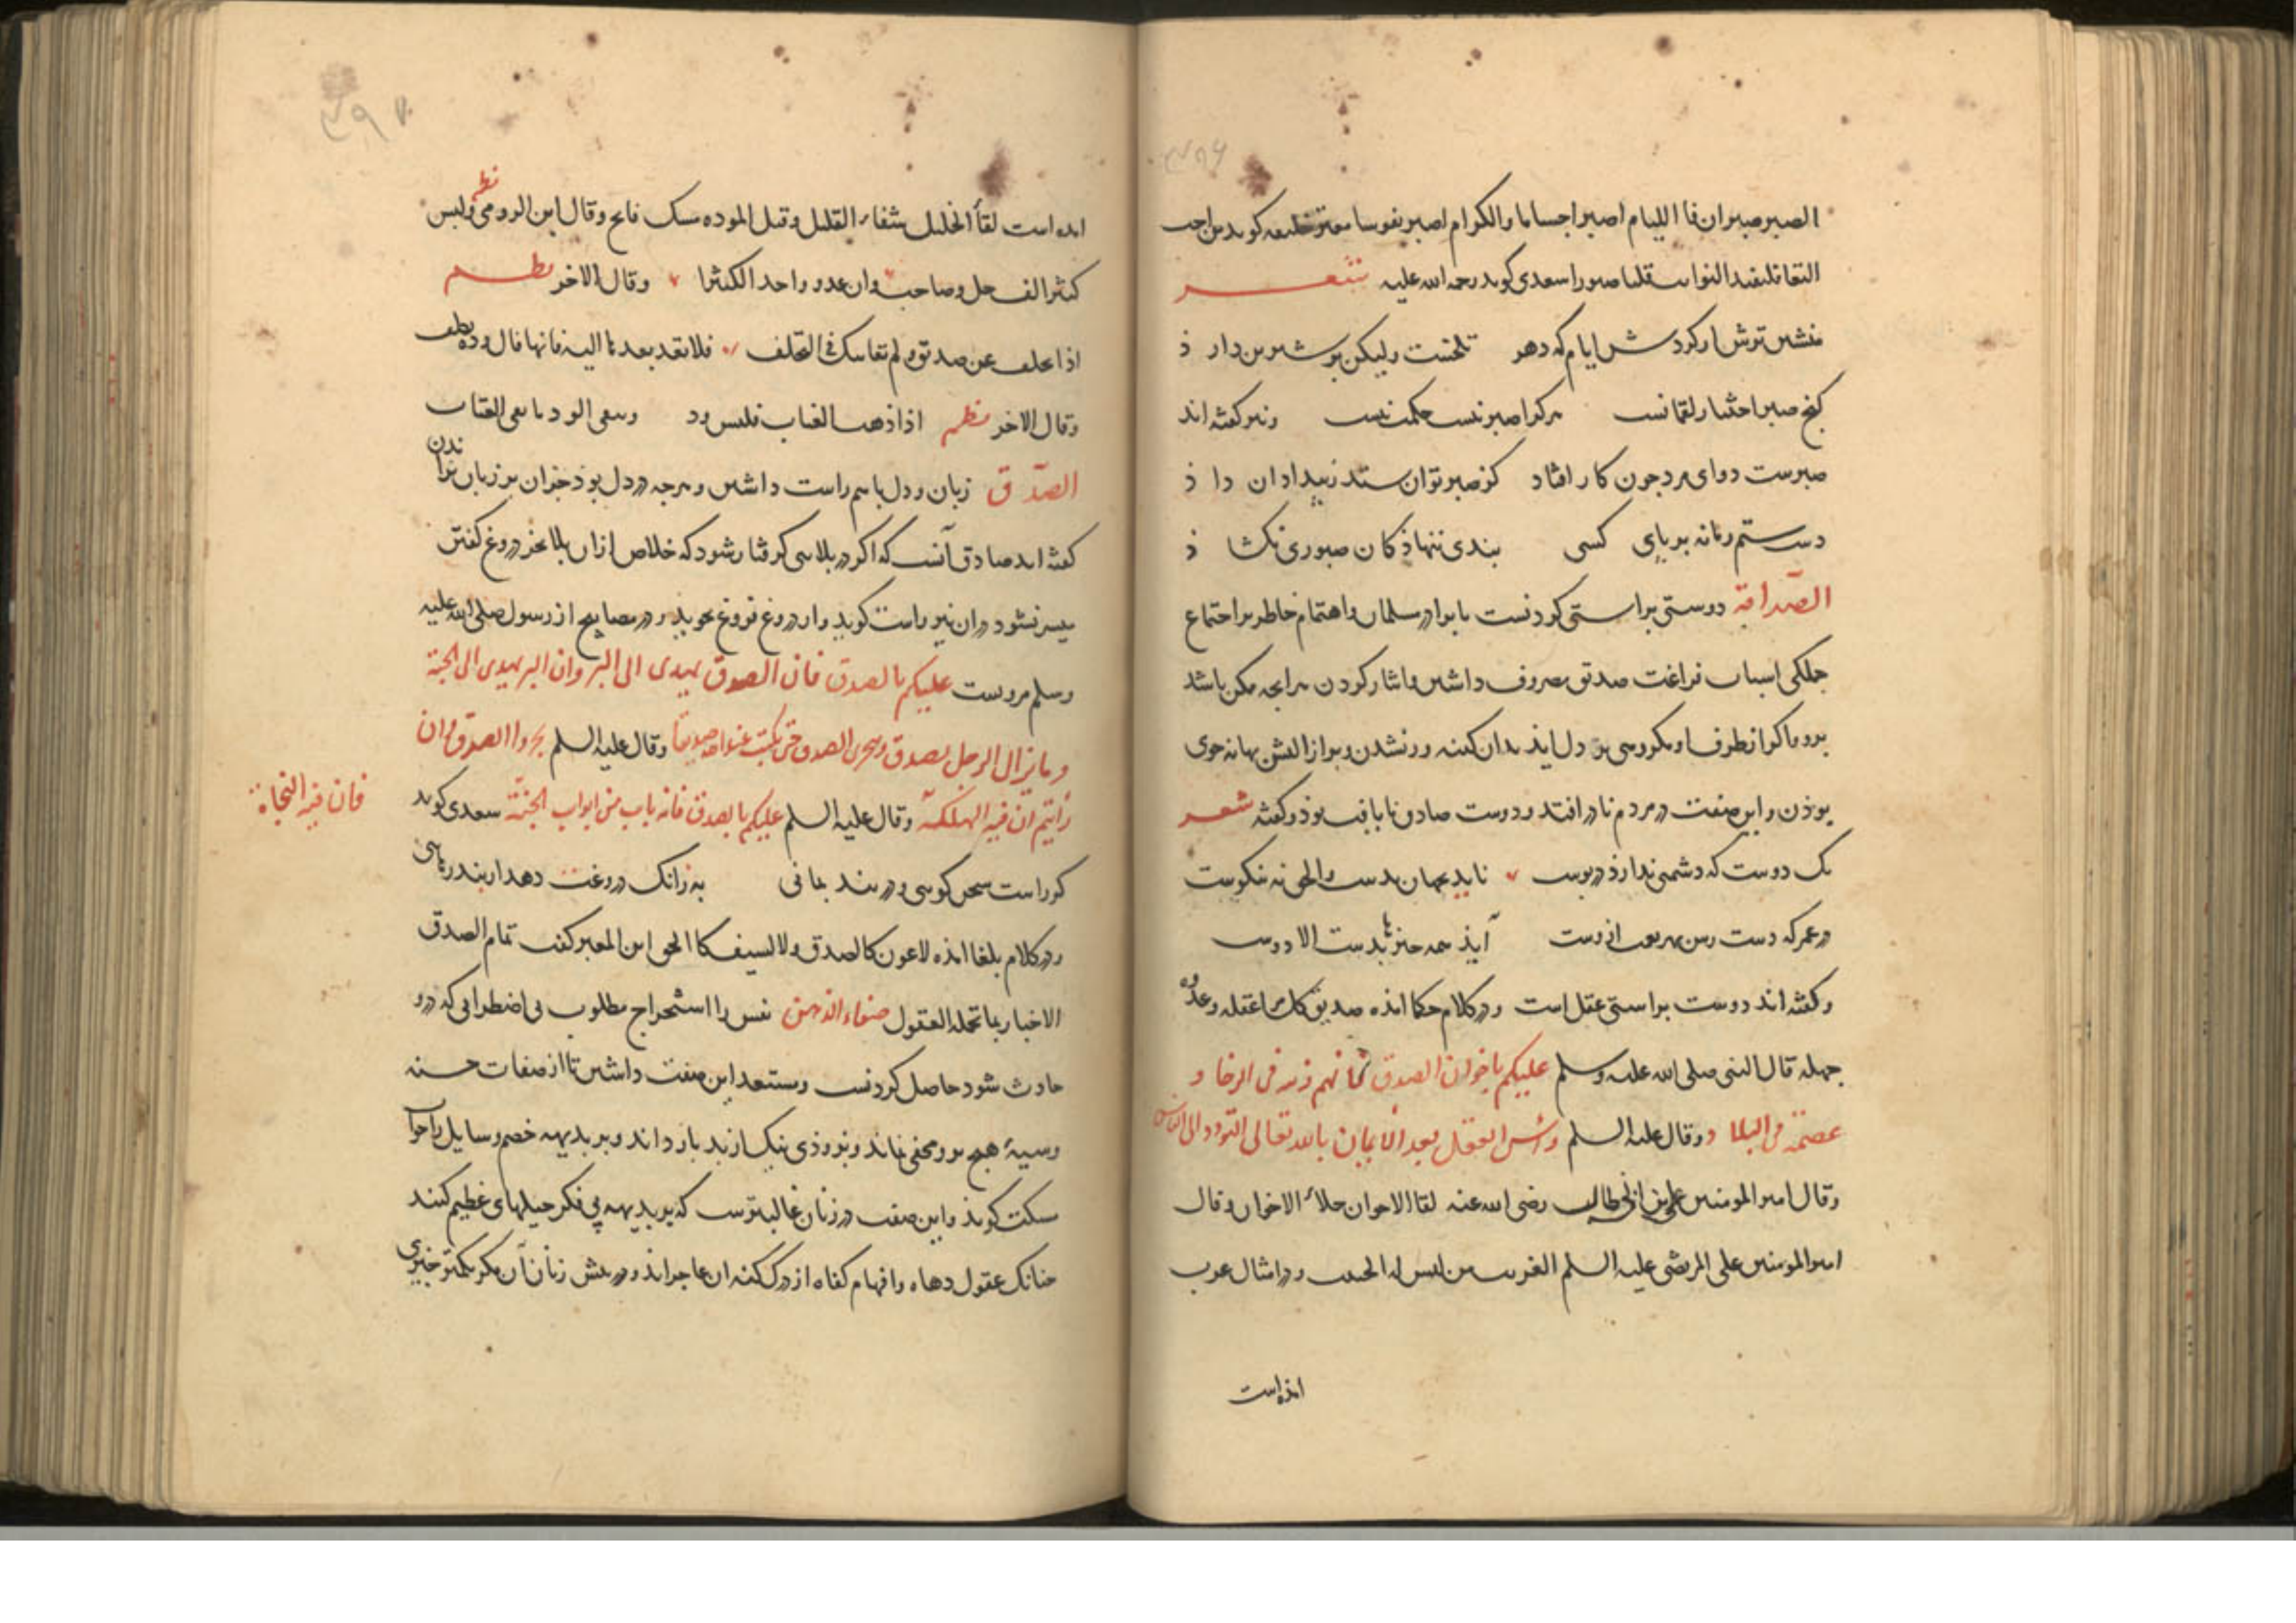 الصبر صبران فا اللیام اصبر اجساما والکرام اصبر نفوسا
سعدی کوید رحمه الله علیه شعر
منشین ترش از کردش ایام که دهر تلخست ولیکن بر شیرین دارذ
کنج صبر اختیار لقمانست هرکرا صبر نیست حکمت نیست ونیز کفته اند
صبرست دوای مرد جون کار افتاد کز صبر توان ستد ز بیداد ان داذ
دست ستم زمانه بر پای کسی بندی ننهاذ کان صبوری نکشاذ
الصداقة دوستی براستی کردنست با برادر مسلمان واهتمام خاطر بر اجتماع
جملکی اسباب فراغت صدیق مصروف داشتن وایثار کردن هرانجه ممکن باشد
برو واکر از طرف او مکروهی بر دل ایذ بدان کینه ور نشدن وبرای زالتش بهانه جوی
بوذن واین صفت در مردم نادر افتد ودوست صادق نایافت بوذ وکفته شعر
یک دوست که دشمنی ندارذ در پوست ناید بجهان بدست والحق نه نکوست
در عمر که دست من آیذ همه جیزها بدست الا دوست
وکفته اند دوست براستی عقل است ودر کلام حکما امذه صدیق کل امرء عقله وعدوه
جهله قال النبی صلی الله علیه وسلم علیکم باخوان الصدق فانهم زینة فی الرخا و
عصمة فی البلا وقال علیه السلم راس العقل بعد الایمان بالله تعالی التودد الی الناس
وقال امیر المومنین علی بن ابی طالب رضی الله عنه لقا الاخوان جلاء الاخوان وقال
امیر المومنین علی المرتضی علیه السلم الغریب من لیس له الحبیب ودر امثال عرب
امذه است
امده است لقاء الخلیل شفاء الغلیل وقیل الموده وقال ابن الرومی نظم ولیس
کثیرا الف خل وصاحب وان عدوا واحدا لکثیرا وقال الاخر نظم
وقال الاخر نظم اذا ذهب العتاب فلیس ود ویبقی الود ما بقی العتاب
الصدق زبان ودل باهم راست داشتن وهرجه در دل بوذ جز ان بر زبان نراندن
کفته اند صادق آنست که اکر در بلاسی کرفتار شود که خلاص ازان بلا بجز دروغ کفتن
میسر نشود دران نیز راست کوید واز دروغ فروغ نجوید ودر مصابیح از رسول صلی الله علیه
وسلم مرویست علیکم بالصدق فان الصدق یهدی الی البر وان البر یهدی الی الجنة
وما یزال الرجل یصدق ویتحری الصدق حتی یکتب عند الله صدیقا وقال علیه السلم تحروا الصدق وان
رأیتم ان فیه الهلکة فان فیه النجاة وقال علیه السلم علیکم بالصدق فانه باب من ابواب الجنة سعدی کوید
کر راست سخن کوسی ودر بند بمانی به زانک دروغت دهد از بند رهاسی
ودر کلام بلغا امذه لا عون کالصدق ولا سیف کا الحق ابن المعبر کفت تمام الصدق
الاخبار بما تحمله العقول صفاء الذهن نفس را استخراج مطلوب بی اضطرابی که درو
حادث شود حاصل کردنست ومستعد این صفت داشتن تا از صفات حسنه
وسیئه هیج برو مخفی نماند وبزوذی نیک از بد باز داند وبر بدیهه خصم وسایل را جواب
مسکت کویذ واین صفت در زنان غالبترست که بر بدیهه بی فکر حیلهای عظیم کنند
جنانک عقول دهاه وافهام کفاه از درک کنه ان عاجز اند ودر پیش زنان آن مکر کمتر جیزی